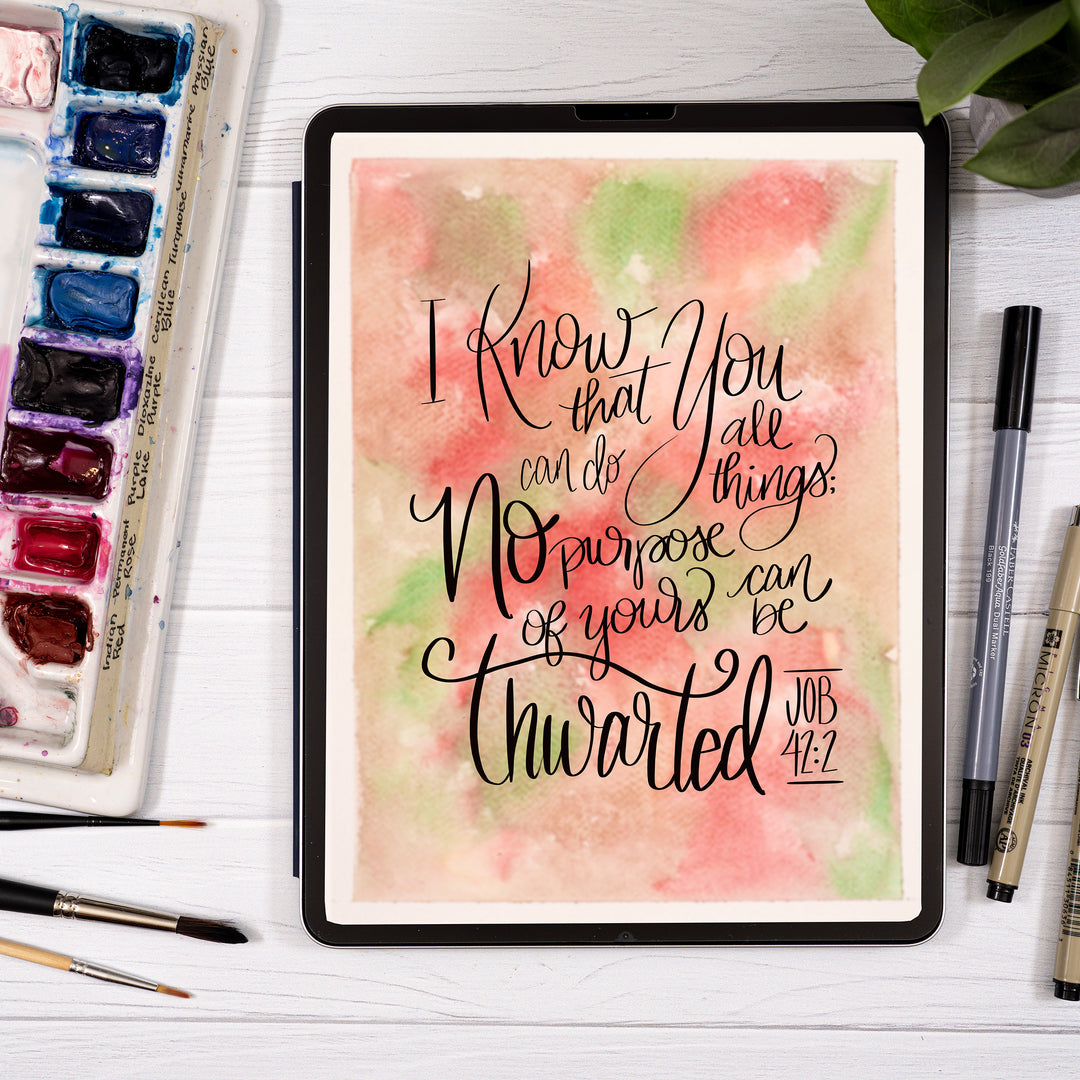 Prussian
Blue
Ultramarine
Turquoise
Cerulean
Blue
Dioxazine
Purple
Purple
Lake
Permanent
Rose
Indian
Red
I Know
that You
can do all
things;
No purpose
of yours can
be
Thwarted
JOB
42:2
FABER-CASTELL
Goldfaber Aqua Dual Marker
Black 199
PIGMA
MICRON 03
ARCHIVAL INK